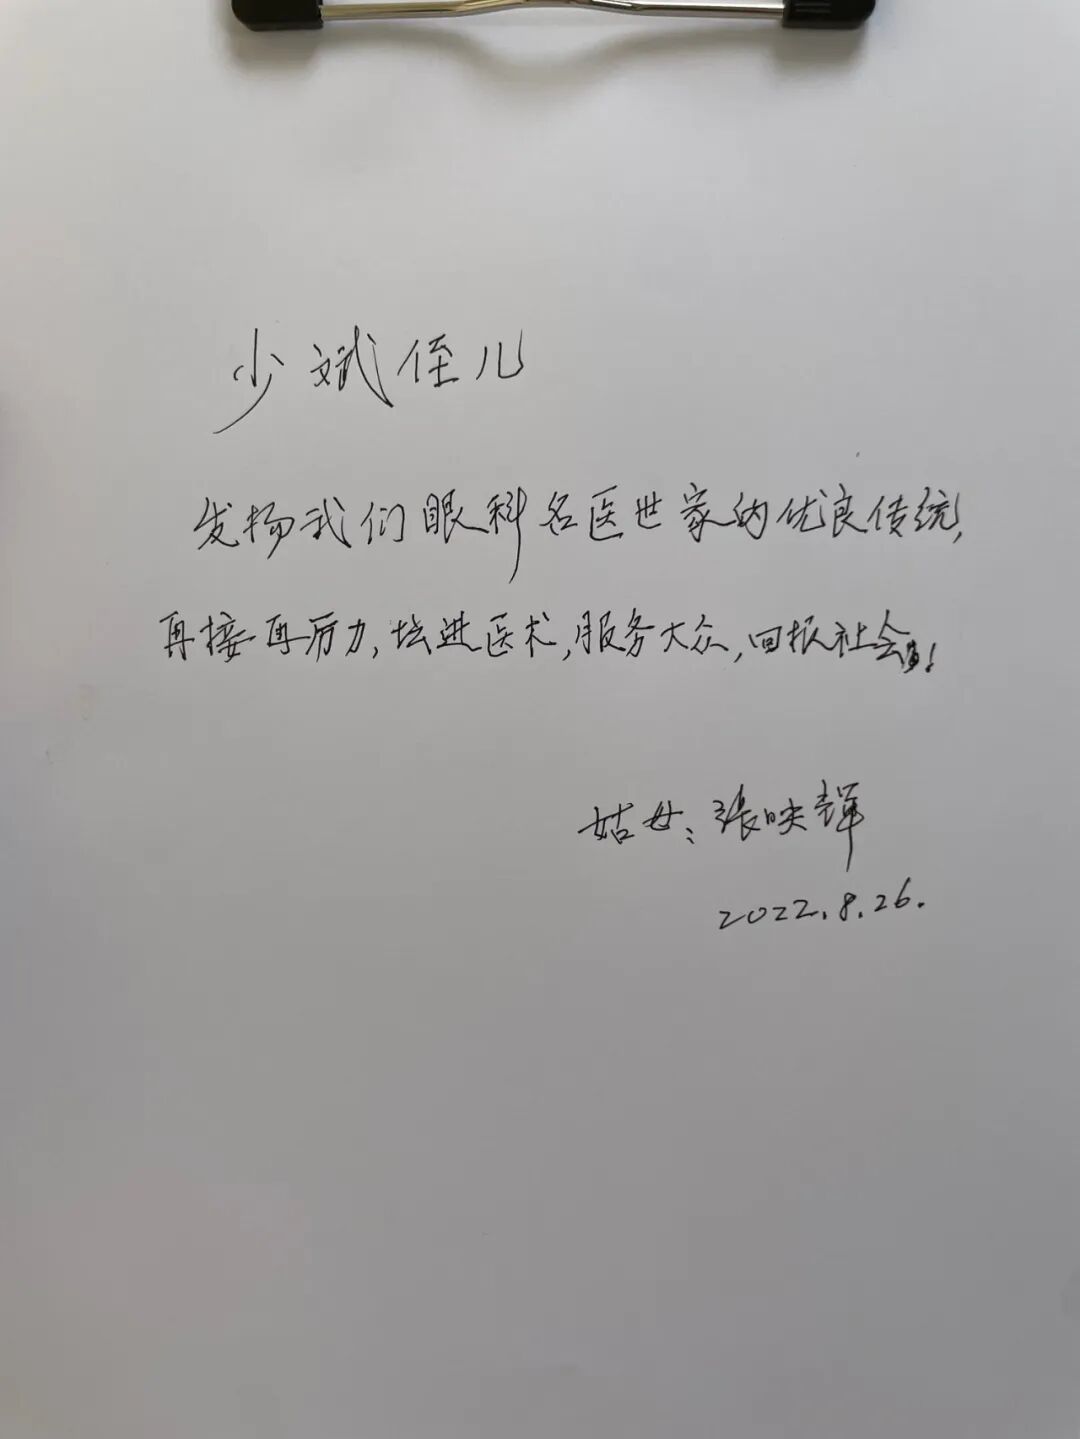 少斌侄儿
发扬我们眼科名医世家的优良传统,
再接再厉力,坛进医术,服务大众,回报社会!
姑母:張映輝
2022.8.26.